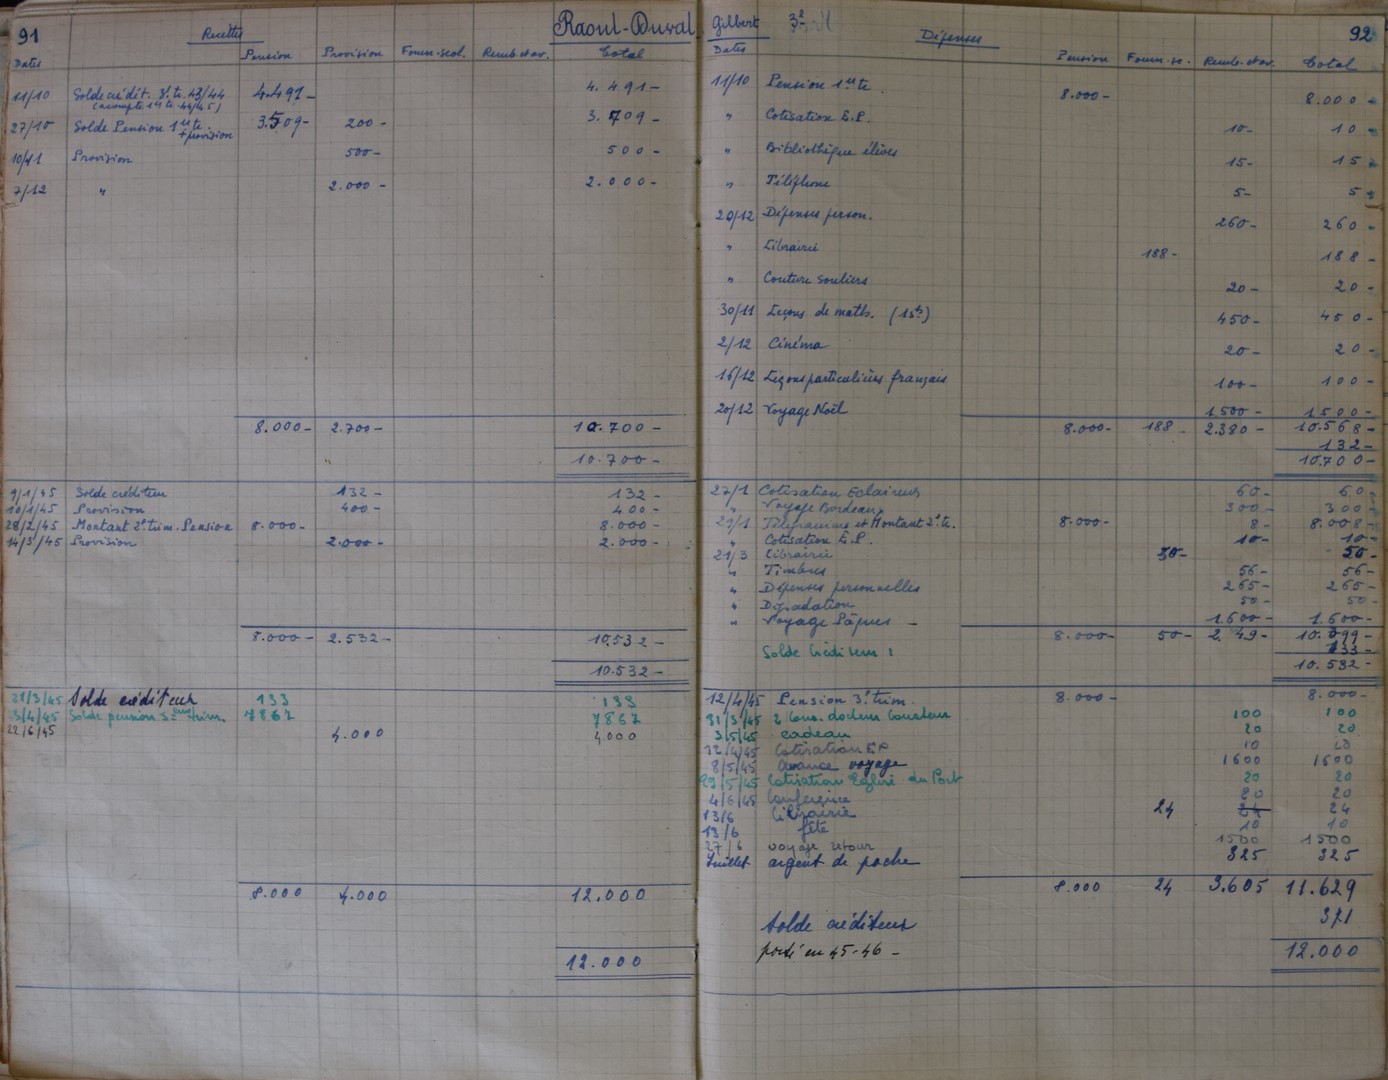 91 Recettes Raoul-Duval
Dates Pension Provision Fourn. scol. Remb. et av. Total
11/10 Solde crédit. 3e. te. 43/44 4.491- 4.491-
(acompte 1er te. 44/45)
27/10 Solde Pension 1er te. 3.509- 200- 3.709-
+ provision
10/11 Provision 500- 500-
7/12 " 2.000- 2.000-
8.000- 2.700- 10.700-
10.700-
9/1/45 Solde créditeur 132- 132-
10/1/45 Provision 400- 400-
28/2/45 Montant 2e. trim. Pension 8.000- 8.000-
14/3/45 Provision 2.000- 2.000-
8.000- 2.532- 10.532-
10.532-
31/3/45 Solde créditeur 133 133
Solde pension 3ème trim. 7867 7867
22/6/45 4.000 4000
8.000 4.000 12.000
12.000
Gilbert 3e Dépenses 92
Dates Pension Fourn. sc. Remb. et av. Total
11/10 Pension 1er te. 8.000- 8.000-
" Cotisation E.P. 10- 10-
" Bibliothèque élèves 15- 15-
" Téléphone 5- 5-
20/12 Dépenses person. 260- 260-
" Librairie 188- 188-
" Couture souliers 20- 20-
30/11 Leçons de math. (15h) 450- 450-
2/12 Cinéma 20- 20-
16/12 Leçons particulières français 100- 100-
20/12 Voyage Noël 1500- 1500-
8.000- 188- 2.380- 10.568-
132-
10.700-
27/1 Cotisation Eclaireurs 60- 60-
" Voyage Bordeaux 300- 300-
29/1 Télégramme et Montant 2e. te. 8.000- 8- 8.008-
" Cotisation E.P. 10- 10-
21/3 Librairie 50- 50-
" Timbres 56- 56-
" Dépenses personnelles 265- 265-
" Dégradation 50- 50-
" Voyage Pâques - 1.600- 1.600-
8.000- 50- 2.349- 10.399-
Solde Créditeur : 133-
10.532-
12/4/45 Pension 3e. trim. 8.000- 8.000-
31/3/45 2 Cons. docteur 100 100
3/5/45 cadeau 20 20
12/4/45 Cotisation E P 10 10
8/5/45 avance voyage 1600 1600
29/5/45 Cotisation Eglise du Port 20 20
4/6/45 Conférence 20 20
13/6 Librairie 24 24 24
13/6 fête 10 10
27/6 voyage retour 1500 1500
Juillet argent de poche 325 325
8.000 24 3.605 11.629
Solde créditeur 371
porté en 45-46 - 12.000